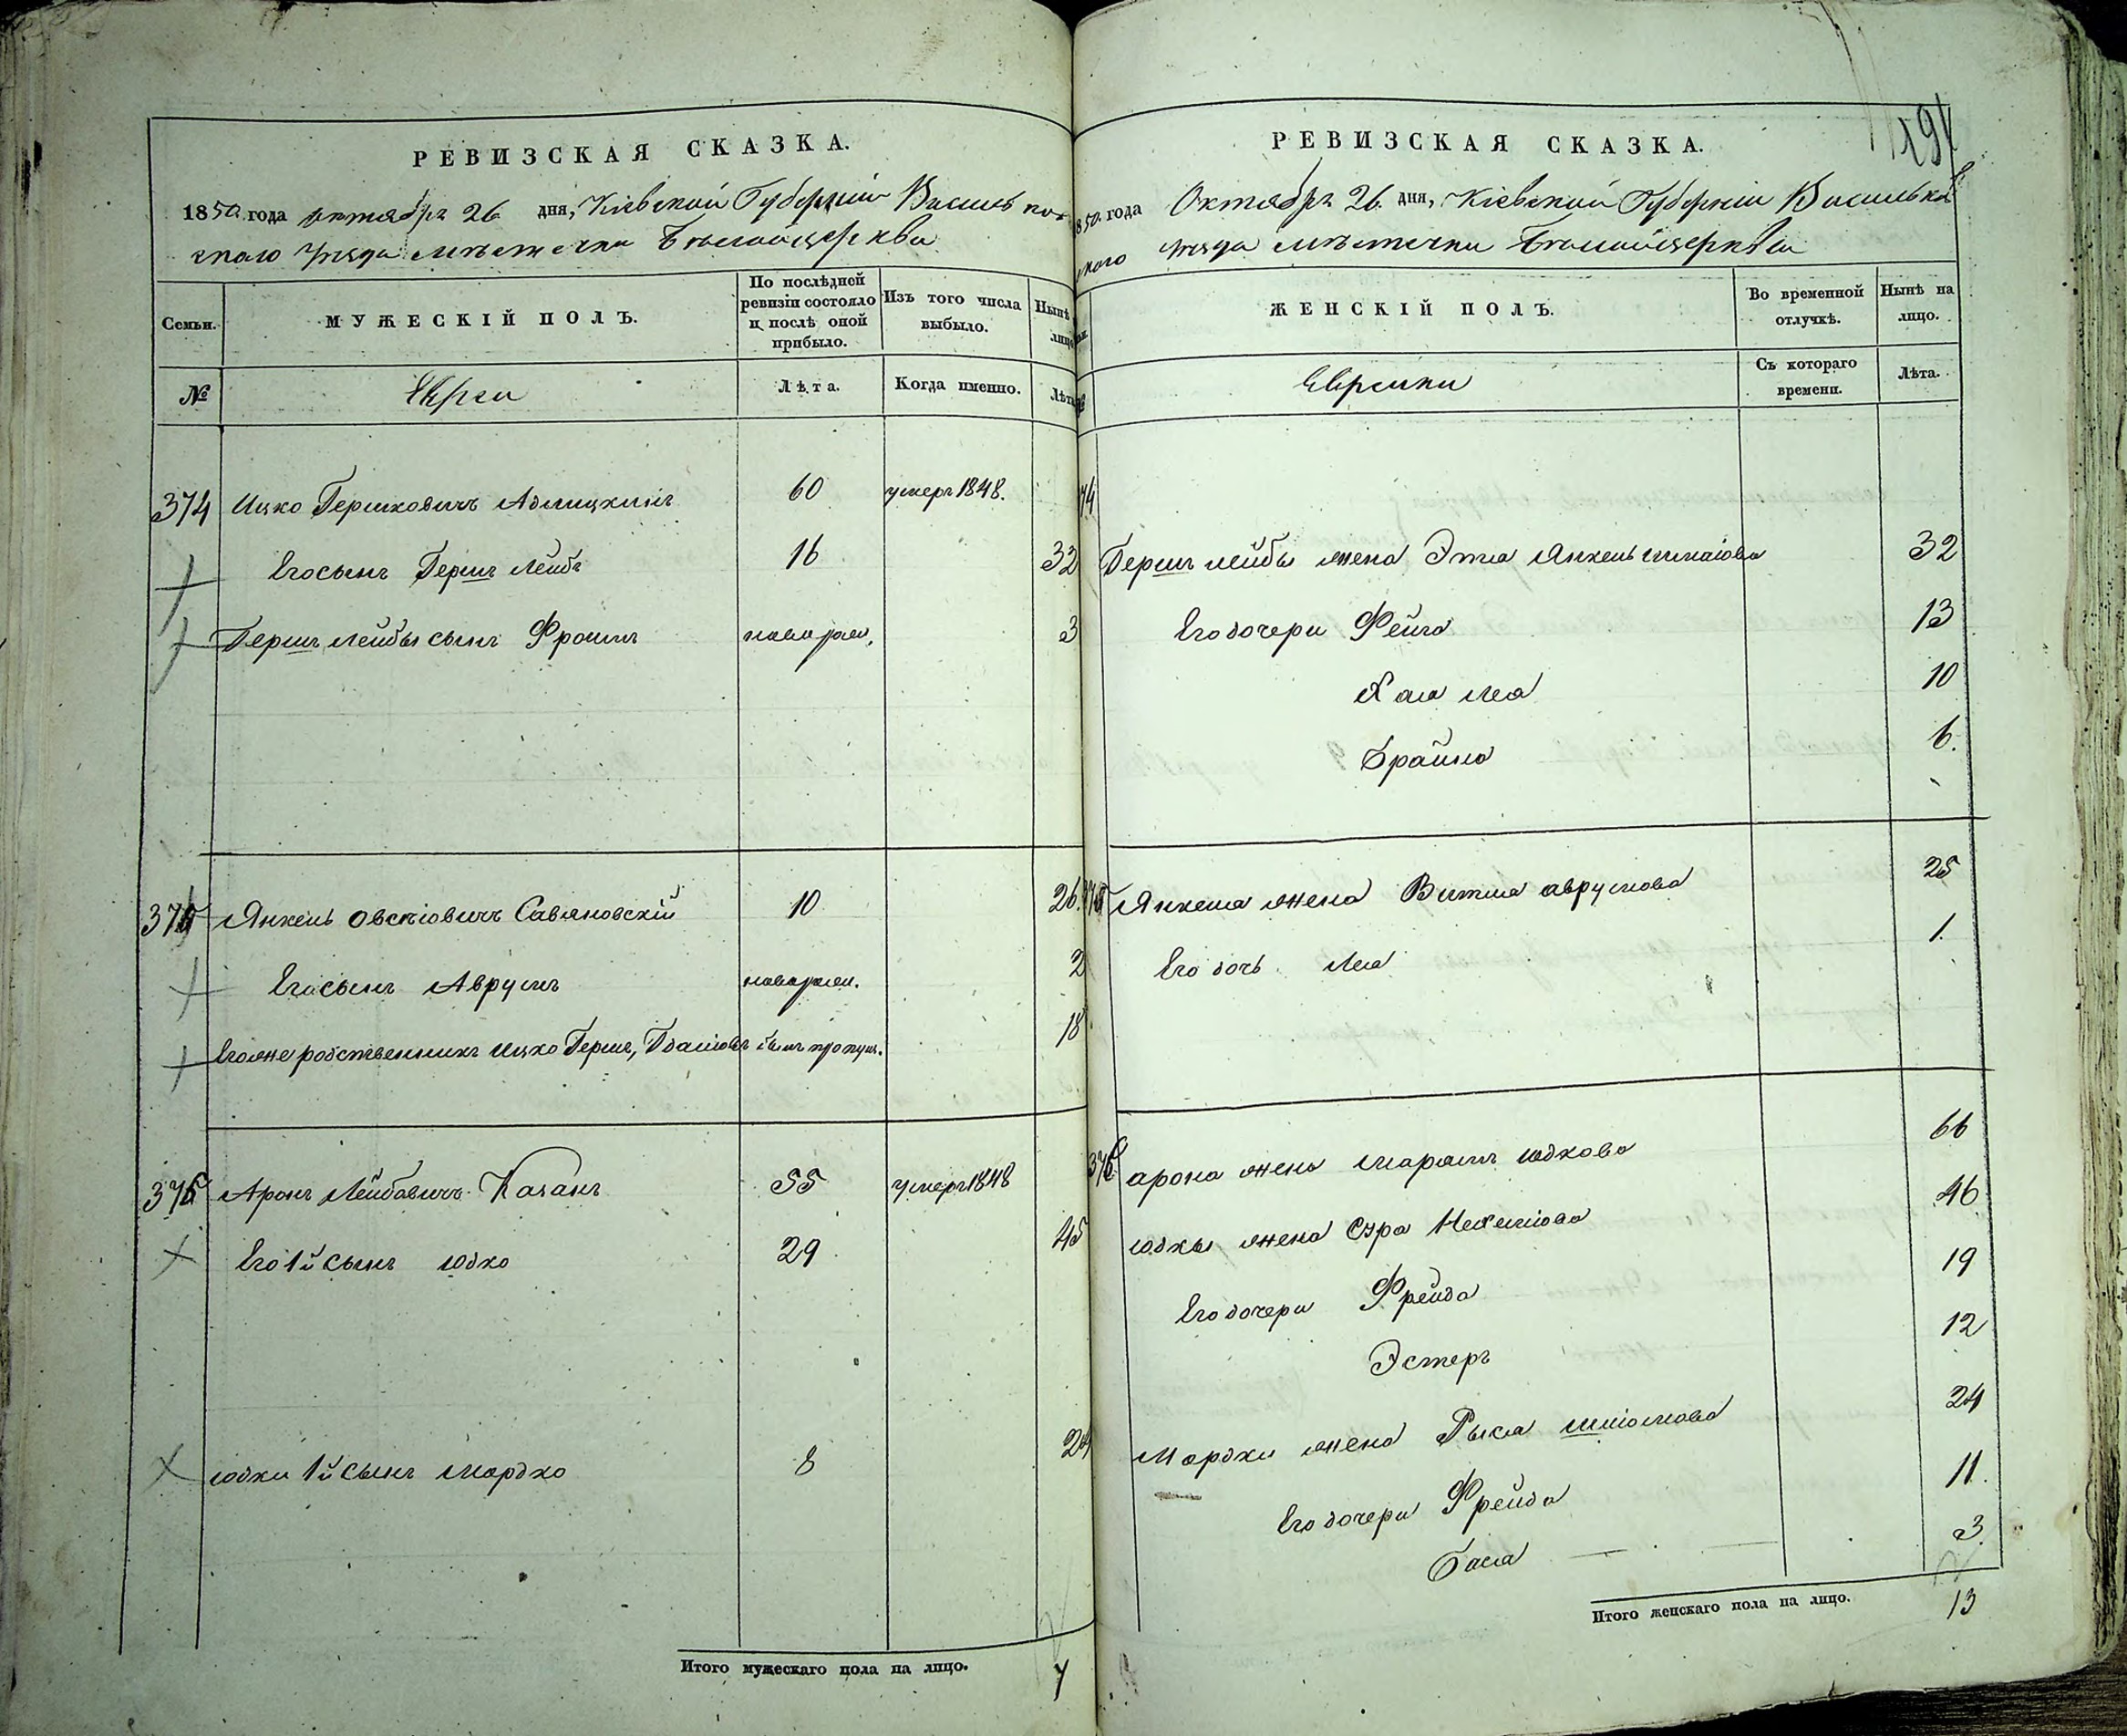 РЕВИЗСКАЯ СКАЗКА.
1850 года октября 26 дня, Кіевской Губерніи Васильков-
скаго Уезда местечка Белойцеркви
Семьи.
МУЖЕСКІЙ ПОЛЪ.
По послѣдней ревизіи состояло и послѣ оной прибыло.
Изъ того числа выбыло.
Нынѣ лицо
№
Евреи
Лѣта.
Когда именно.
Лѣта
374 Ицко Гершковичъ 60 умеръ 1848.
Его сынъ Гершъ Лейбъ 16 32
Гершъ Лейбы сынъ Фроимъ новорож. 3
375 Янкель Овсѣіовичъ Савяновскій 10 26.
Его сынъ Аврумъ новорож. 2
Его же родственникъ Ицко Гершъ, былъ пропущ. 18
376 Аронъ Лейбовичъ Каганъ 55 умеръ 1848
Его 1й сынъ Юдко 29 45
Юдки 1й сынъ Мордко 8 24
Итого мужескаго пола на лицо. 7
191
РЕВИЗСКАЯ СКАЗКА.
1850 года Октября 26 дня, Кіевской Губерніи Васильков
скаго уезда местечка Белойцеркви
ЖЕНСКІЙ ПОЛЪ.
Во временной отлучкѣ.
Нынѣ на лицо.
№
Еврейки
Съ котораго времени.
Лѣта.
74
Гершъ Лейбы жена Этя 32
Его дочери Фейга 13
Хая Лея 10
Брайна 6.
375 Янкеля жена Витля Аврумова 25
Его дочь Лея 1.
376 Арона жена Марьямъ Юдкова 66
Юдки жена Сура Нехеміова 46
Его дочери Фрейда 19
Эстеръ 12
Мордки жена Рыся Шліомова 24
Его дочери Фрейда 11.
Бася 3
Итого женскаго пола на лицо. 13